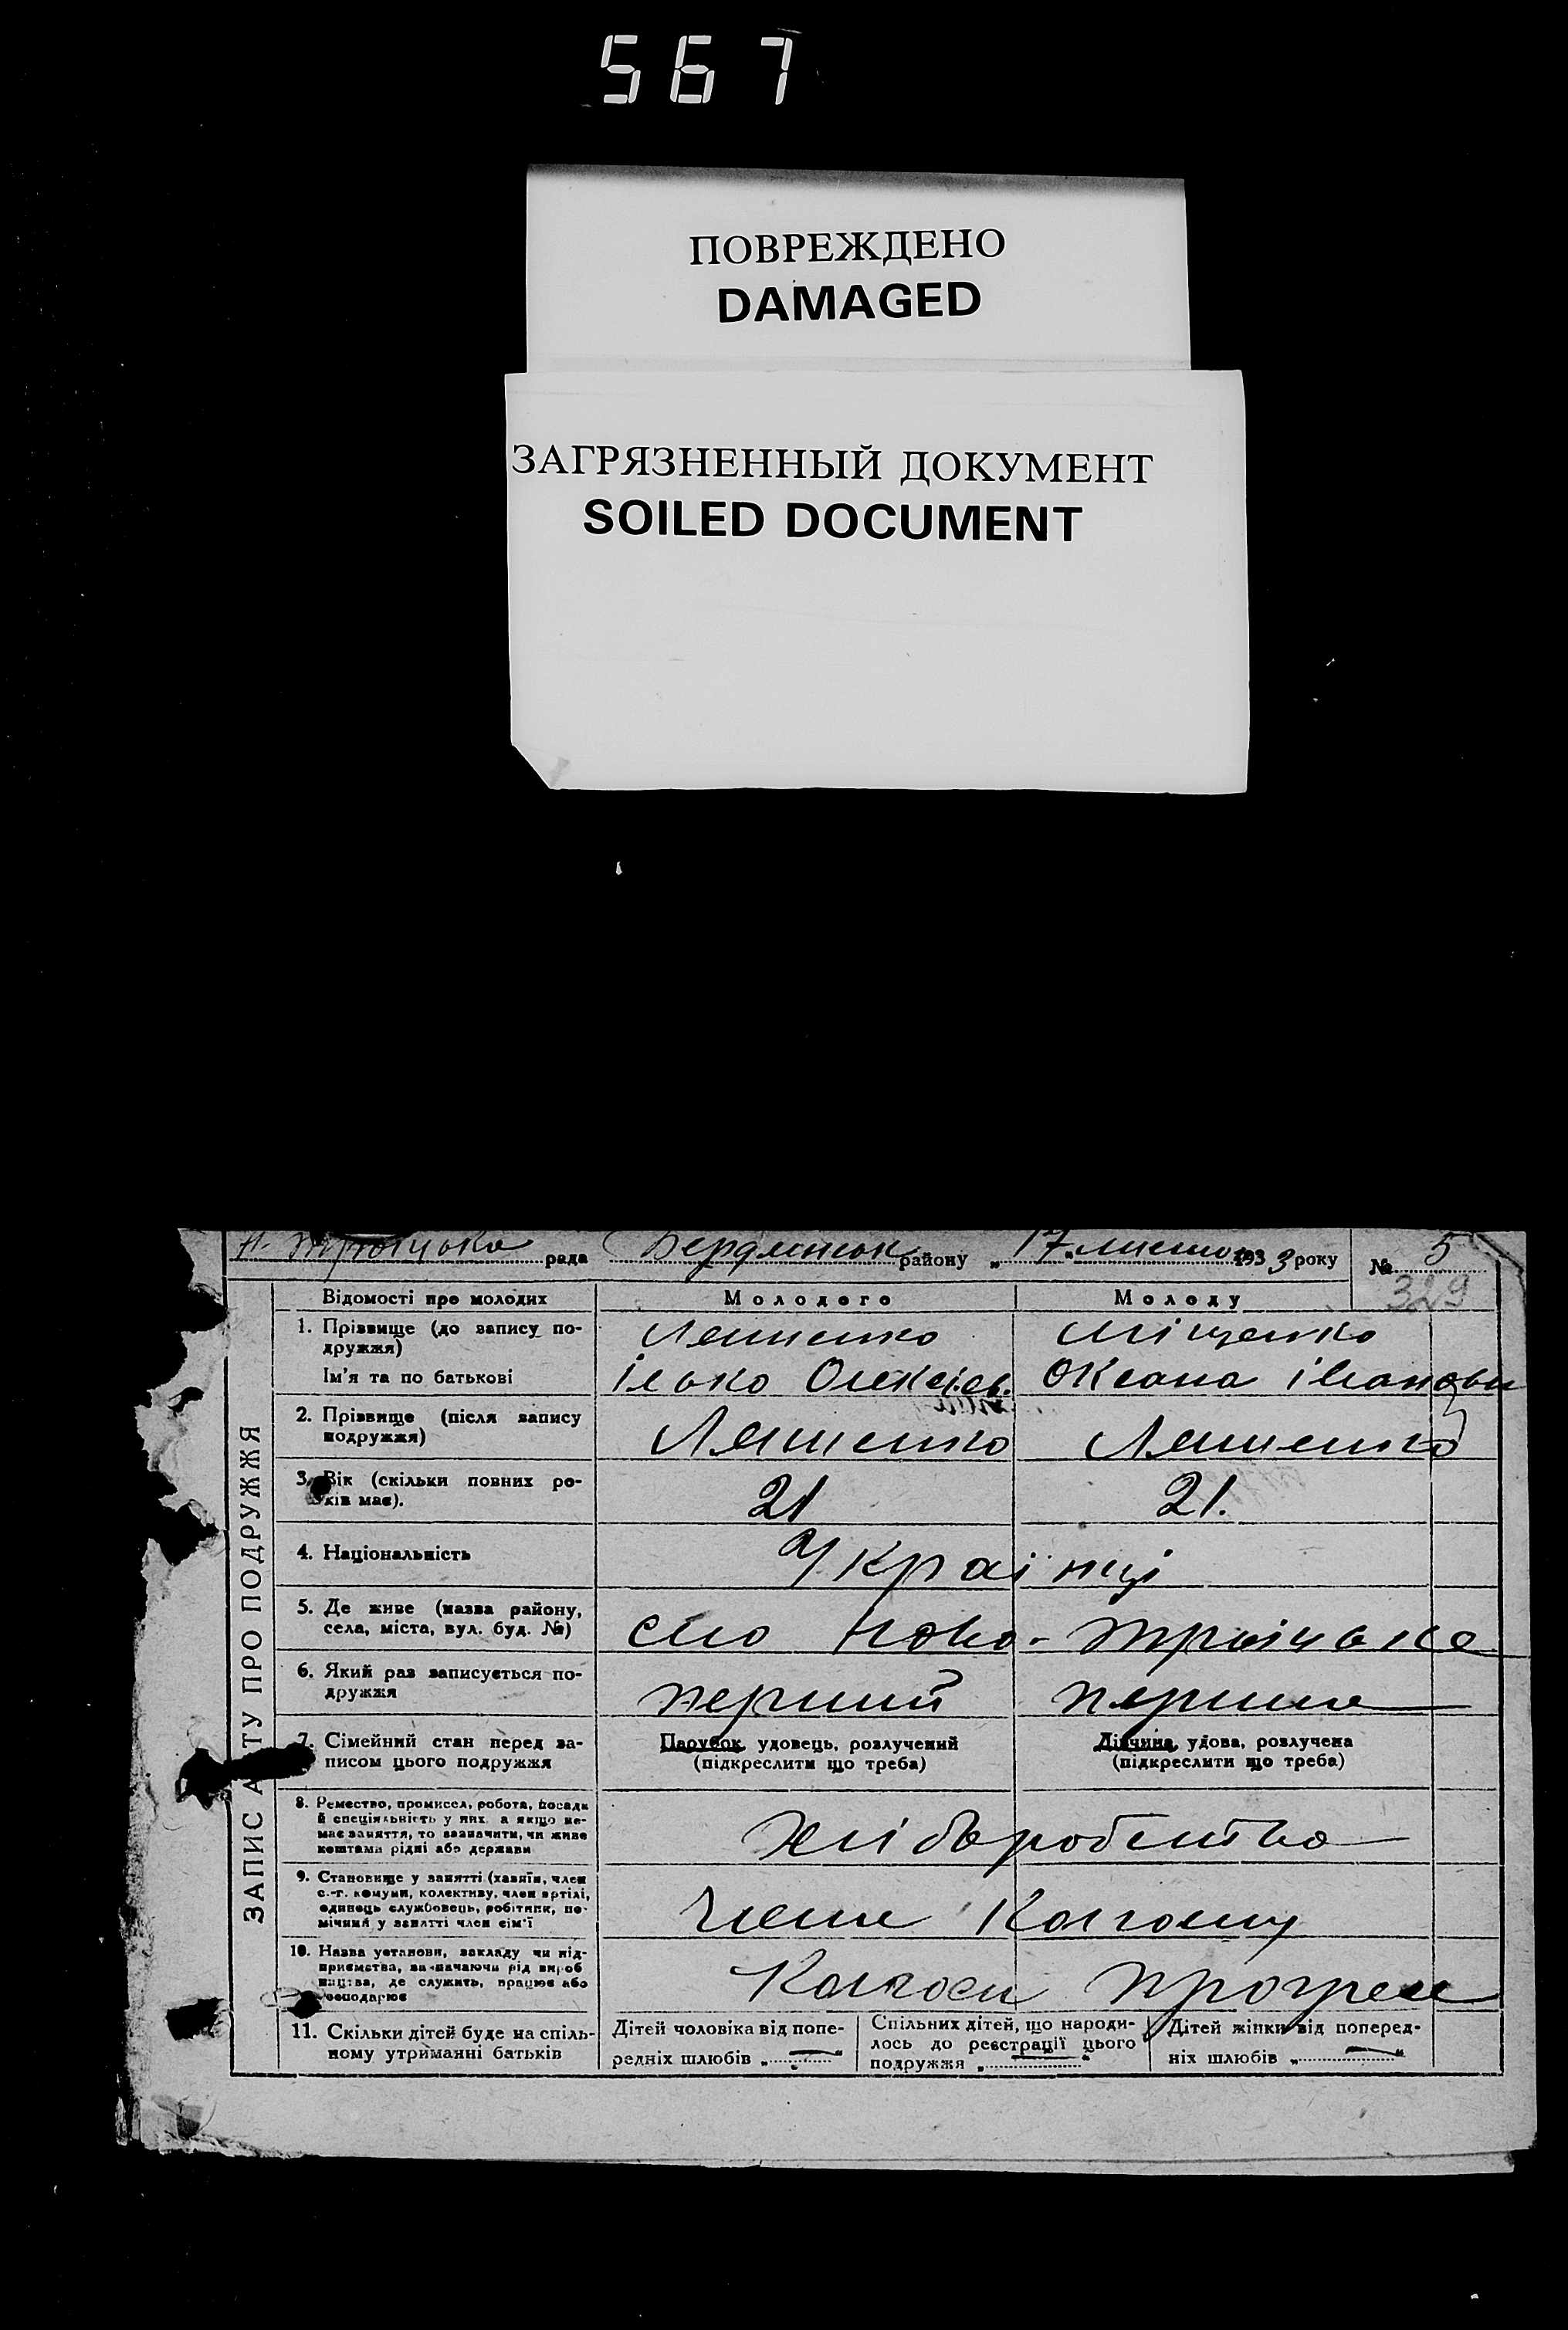 567
ПОВРЕЖДЕНО
DAMAGED
ЗАГРЯЗНЕННЫЙ ДОКУМЕНТ
SOILED DOCUMENT
Н. Троіцька рада Бердянськ району „17„ 1933 року № 5
329
ЗАПИС АКТУ ПРО ПОДРУЖЖЯ
Відомості про молодих Молодого Молоду
1. Прізвище (до запису по- Ляшенко Міщенко
дружжя)
Ім'я та по батькові Ілько Олексієв. Оксана Івановн
2. Прізвище (після запису
подружжя) Ляшенко Ляшенко
3. Вік (скільки повних ро-
ків має). 21 21.
4. Національність Українці
5. Де живе (назва району,
села, міста, вул. буд. №) село Ново-Троіцьке
6. Який раз записується по-
дружжя перший перше
7. Сімейний стан перед за- Парубок, удовець, розлучений Дівчина, удова, розлучена
писом цього подружжя (підкреслити що треба) (підкреслити що треба)
8. Ремество, промисел, робота, посада
й спеціяльність у них, а якщо не-
має заняття, то зазначити, чи живе
коштами рідні або держави хліборобство
9. Становище у занятті (хазяїн, член
с.-г. комуни, колективу, член артілі,
одинець службовець, робітник, по-
мічний у занятті член сім'ї Член Колгоспу
10. Назва установи, закладу чи під-
приємства, зазначаючи рід вироб
ництва, де служить, працює або
господарює Колгосп Прогрес
11. Скільки дітей буде на спіль- Дітей чоловіка від попе- Спільних дітей, що народи- Дітей жінки від поперед-
ному утриманні батьків редніх шлюбів „—“ лось до реєстрації цього ніх шлюбів „—“
подружжя „—“